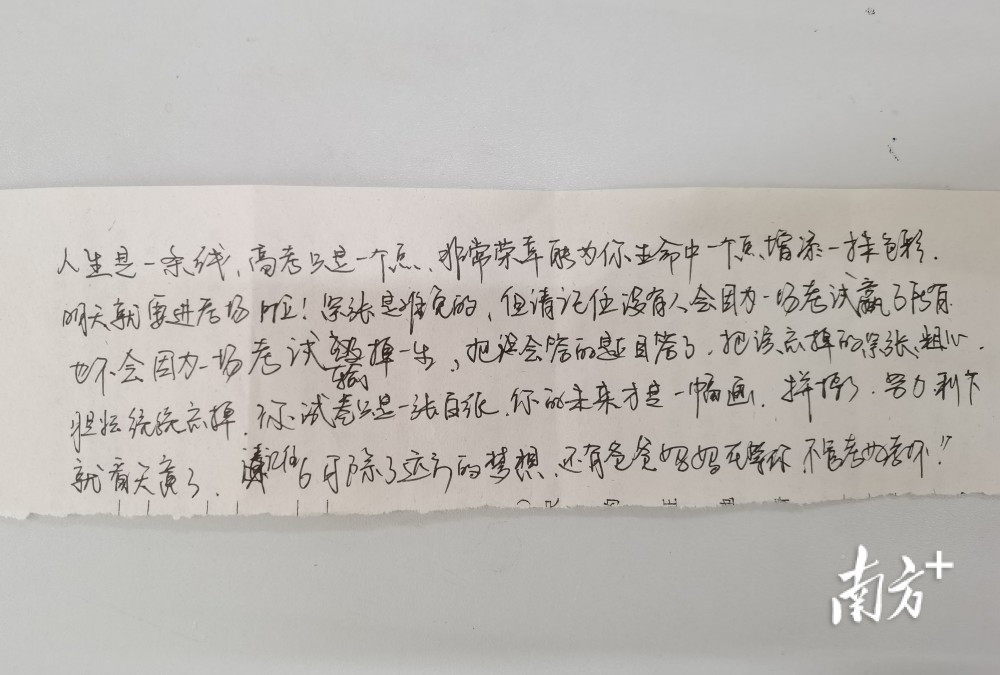 人生是一条线、高考只是一个点、非常荣幸能为你生命中一个点增添一抹色彩.
明天就要进考场啦！紧张是难免的，但请记住没有人会因为一场考试赢了所有
也不会因为一场考试输掉一生，把该会答的题目答了，把该忘掉的紧张、粗心、
胆怯统统忘掉. 你试卷只是一张白纸，你的未来才是一幅画. 拼搏了、努力剩下
就看天意了. 请记住6月除了远方的梦想、还有爸爸妈妈在等你 不管考好考坏！”
南方+